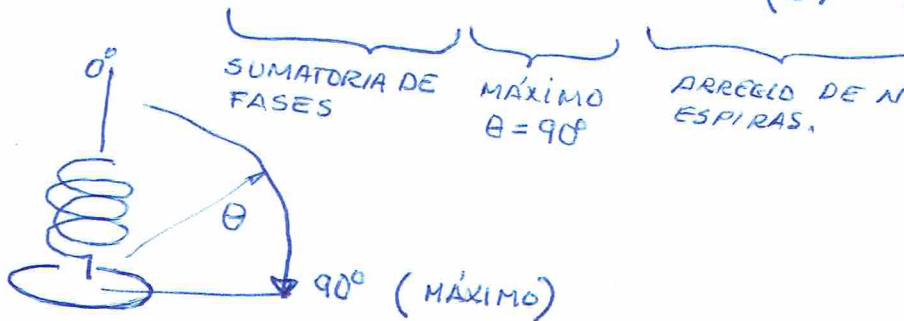 SUMATORIA DE
FASES
MÁXIMO
θ = 90°
ARREGLO DE N
ESPIRAS.
0°
θ
90° (MÁXIMO)